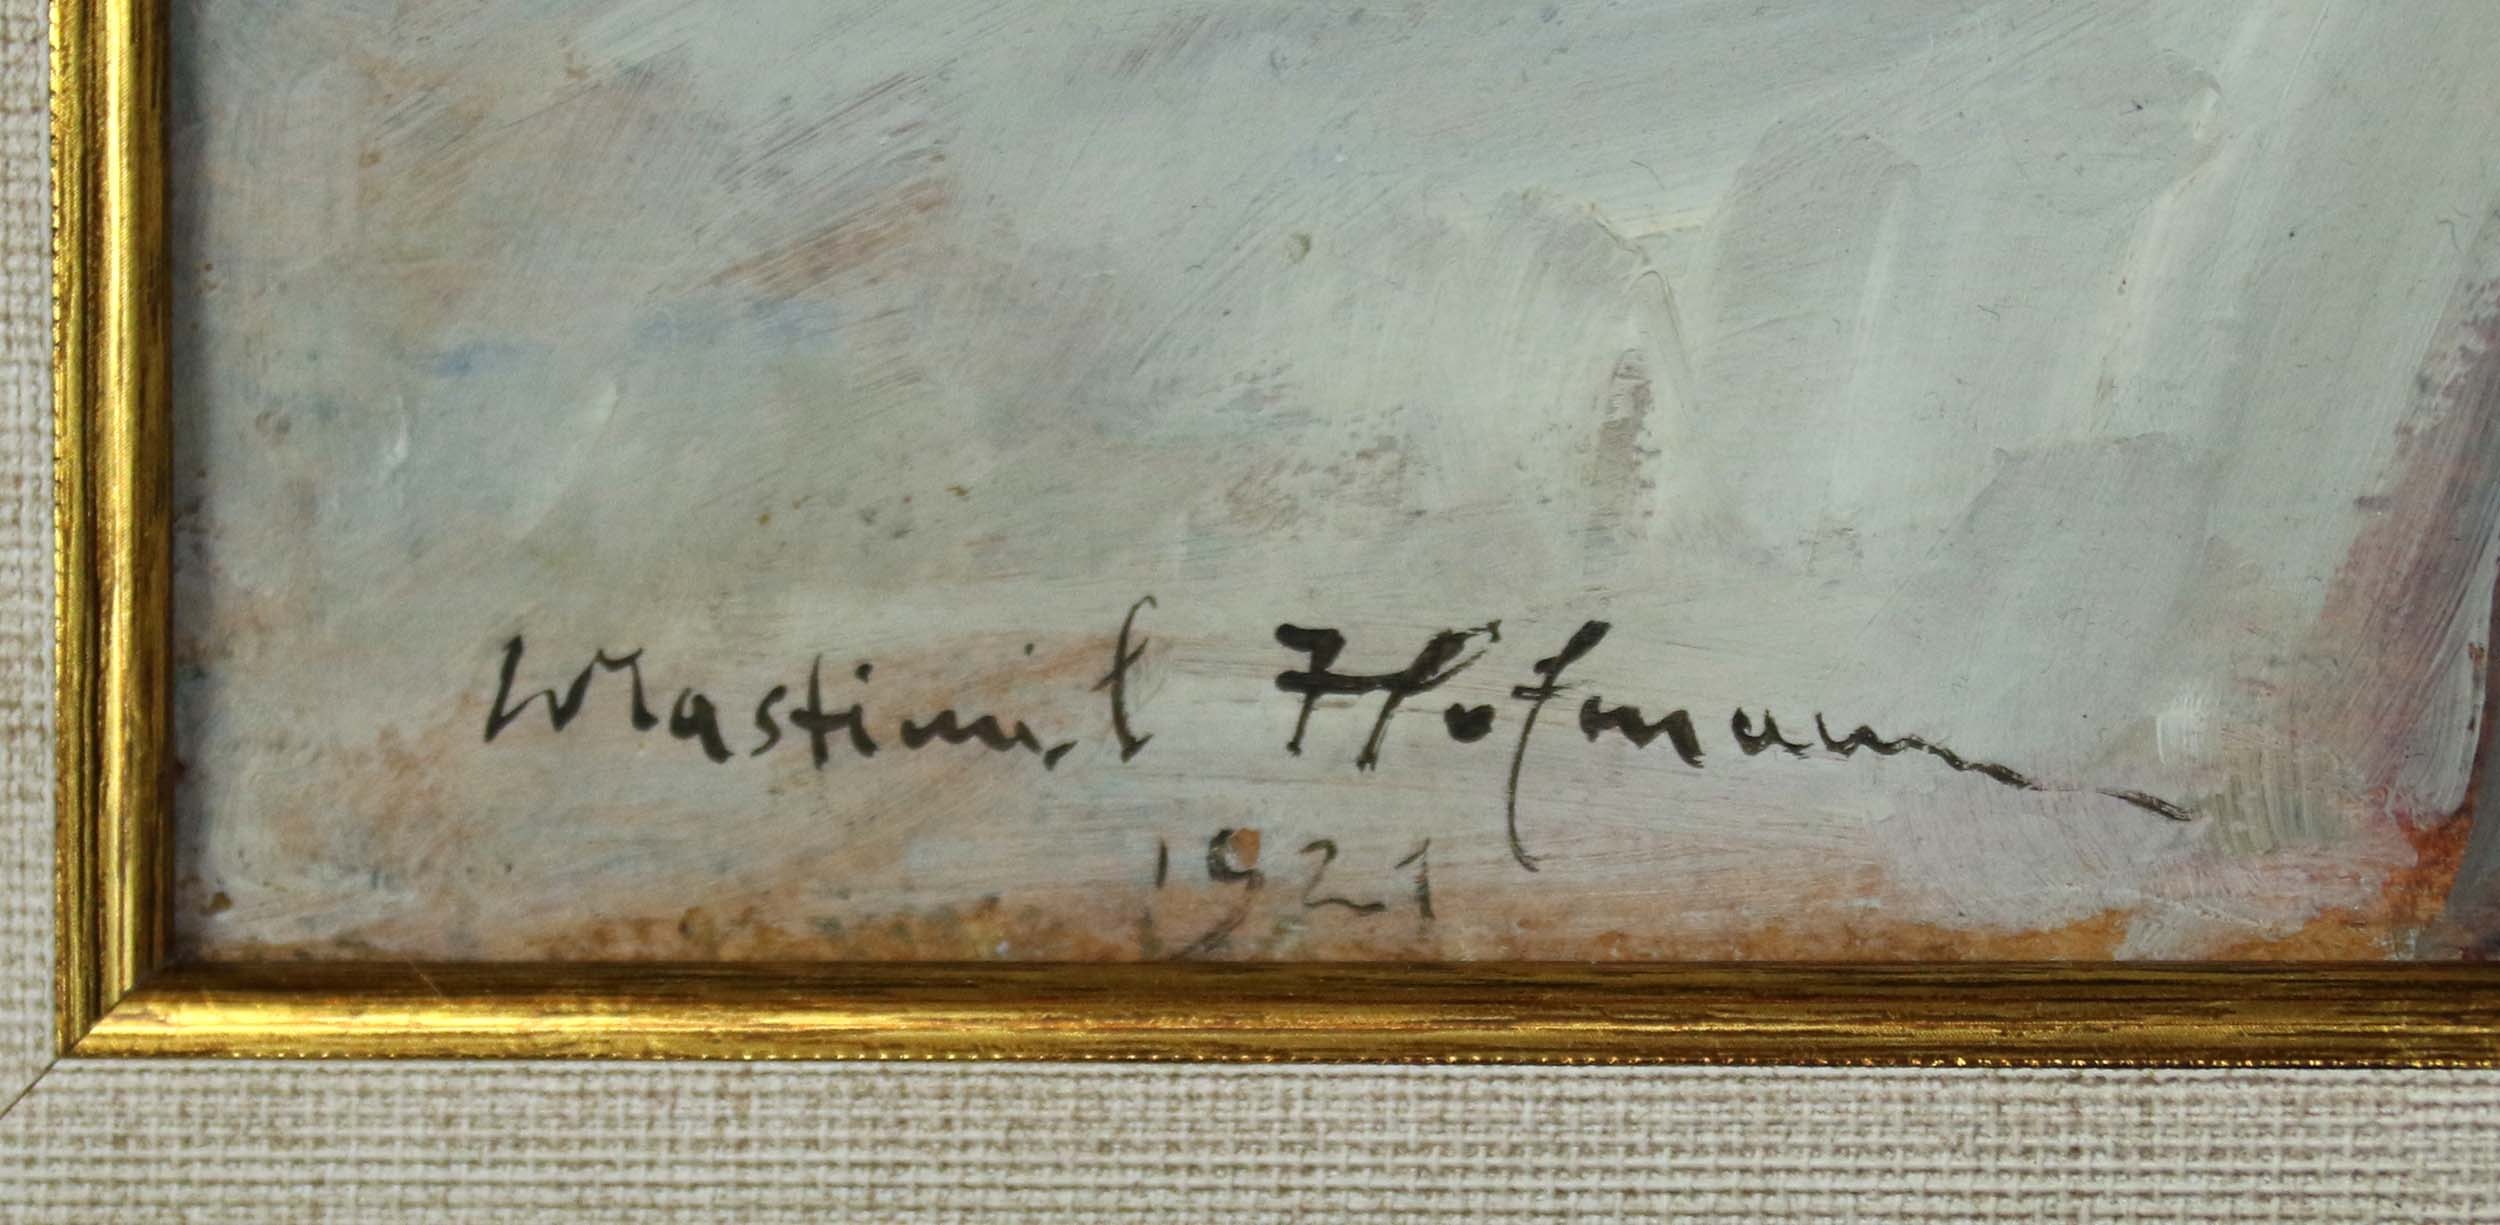 Wlastimil Hofmann
1921